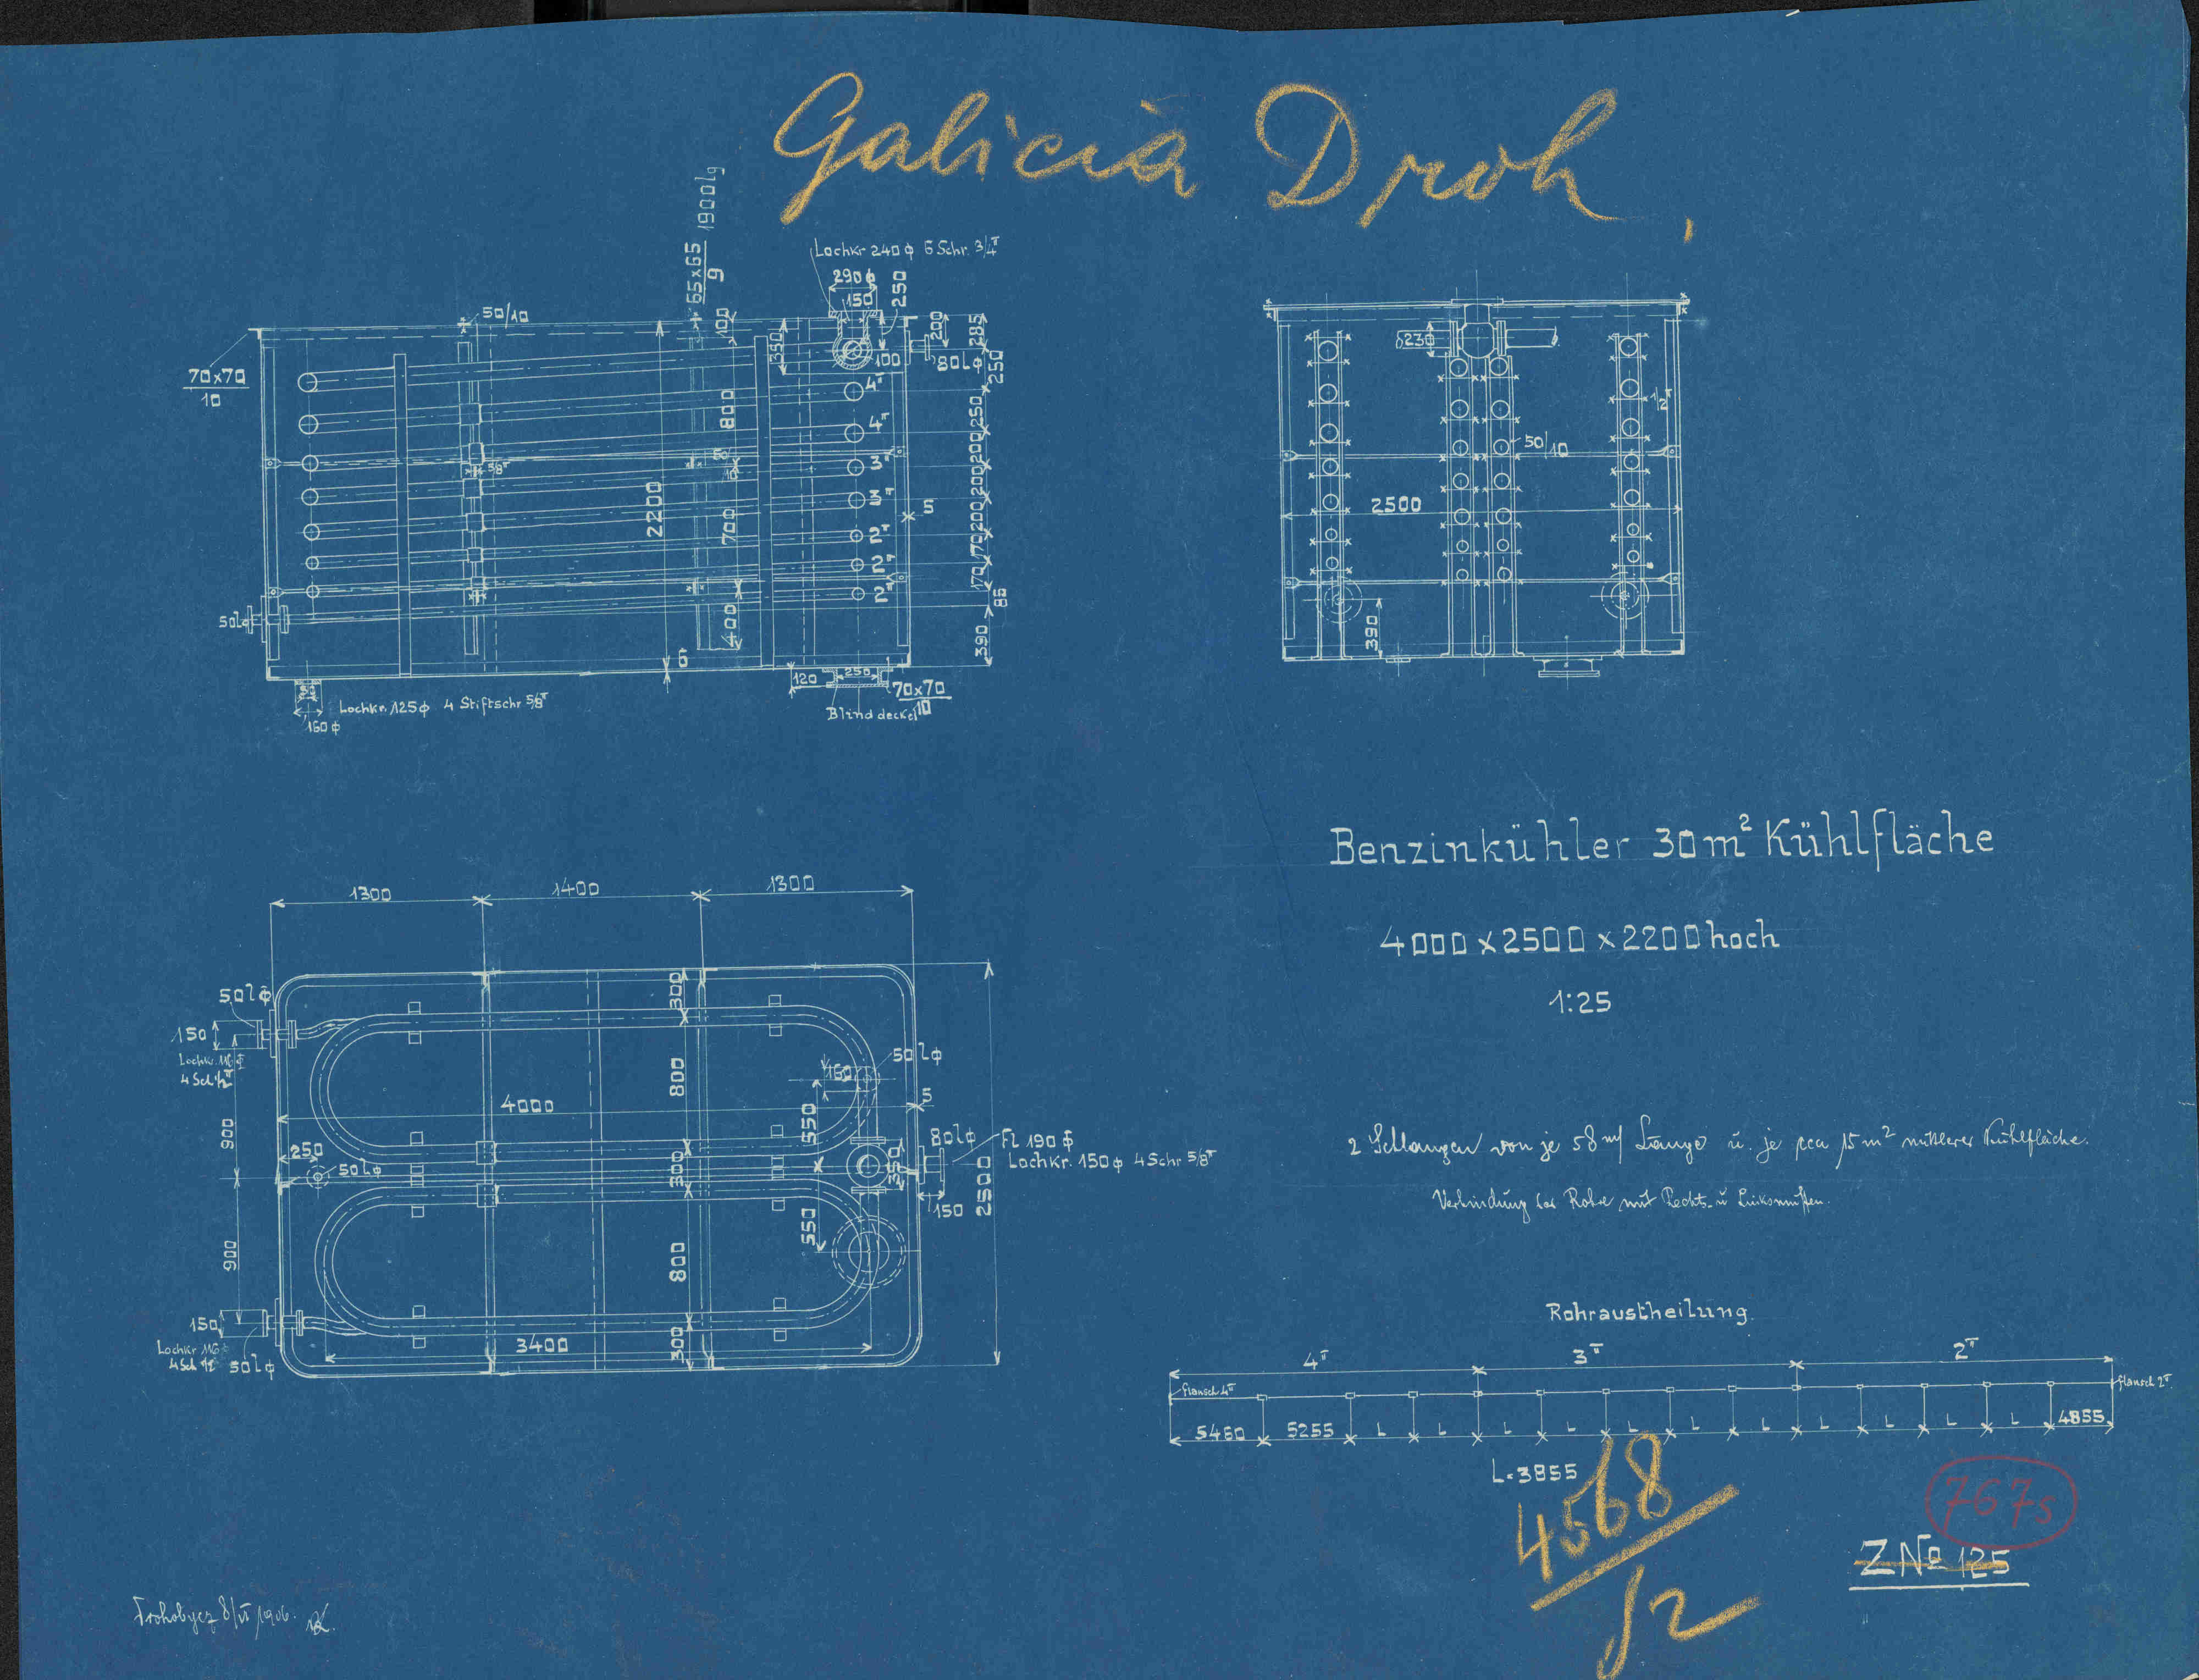 Galicia Droh,
65x65/9 1900 lg
Lochkr 240 ϕ 6 Schr. 3/4"
290 ϕ
150
250
50/10
100
350
200
285
100
80 L ϕ
250
70x70/10
4"
800
250
4"
200
3"
5/8"
200
2200
3"
5
700
200
2"
170
2"
170
2"
85
50 L ϕ
400
390
6
120
250
70x70/10
Lochkr. 125 ϕ 4 Stiftschr 5/8"
Blinddeckel
160 ϕ
230
1/2"
50/10
2500
390
Benzinkühler 30 m² Kühlfläche
4000 x 2500 x 2200 hoch
1:25
1300
1400
1300
300
50 l ϕ
150
Lochkr. 116 ϕ
4 Sch 1/2"
50 l ϕ
160
800
4000
5
550
900
80 l ϕ
Fl. 190 ϕ
Lochkr. 150 ϕ 4 Schr 5/8"
250
50 L ϕ
300
350
150
2500
550
900
800
150
Lochkr 116
4 Sch 1/2
50 l ϕ
3400
300
2 Schlangen von je 58 m/ Länge u. je cca 15 m² mittlerer Kühlfläche.
Verbindung der Rohre mit Rechts- u Linksmuffen.
Rohraustheilung
4"
3"
2"
flansch 4"
flansch 2"
5460
5255
L L L L L L L L L L L
4855
L = 3855
4568/12
767s
Z No 125
Drohobycz 8/VI 1906.